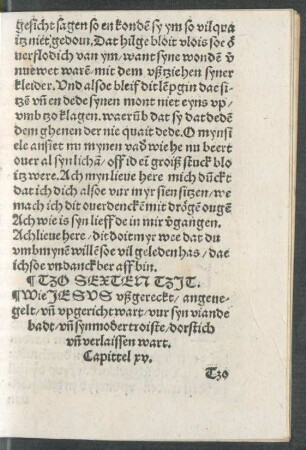 gesicht sagen so en kondē sy ym so vil qua
itz niet gedoin. Dat hilge bloit vlois soe d̕
verflodich van ym / want syne wondē v̄
nuwet warē / mit dem vßtziehen syner
kleider. Vnd alsoe bleif dit lēpgin dae si-
tzē vn̄ en dede synen mont niet eyns vp /
vmb zo klagen. waerūb dat sy dat dedē
dem ghenen der nie quait dede. O mynſ
ele ansiet nu mynen vad̕ wie he nu beert
ouer al syn lichā / off id eī groiß stuck blo
itz were. Ach myn lieue here mich dūckt
dat ich dich alsoe vur myr sien sitzen / we
mach ich dit ouerdenckē mit drögē ougē
Ach wie is syn lieff de in mir v̕gangen.
Ach lieue here / dit doit myr wee dat du
vmb mynē willē soe vil geleden has / dae
ich soe vndanckber aff bin.
¶ TZO SEXTEN TZIT.
¶ Wie JESVS vßgereckt / angene-
gelt / vn̄ vpgericht wart / vur syn viande
badt / vn̄ syn moder troiste / dorstich
vn̄ verlaissen wart.
Capittel xv.
Tzo